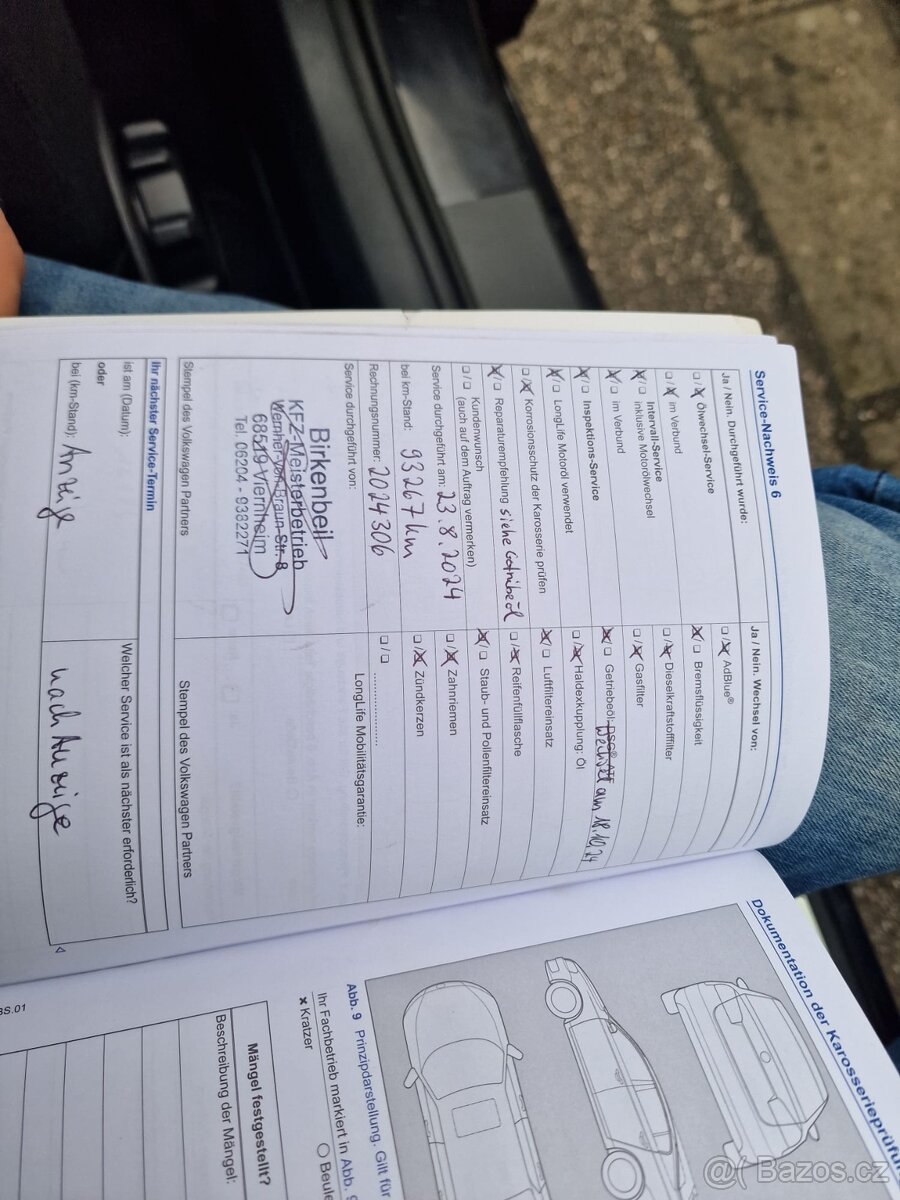 Service-Nachweis 6
Ja / Nein. Durchgeführt wurde:
☐/☒ Ölwechsel-Service
☐/☒ im Verbund
☒/☐ Intervall-Service
inklusive Motorölwechsel
☒/☐ im Verbund
☒/☐ Inspektions-Service
☒/☐ LongLife Motoröl verwendet
☐/☒ Korrosionsschutz der Karosserie prüfen
☒/☐ Reparaturempfehlung siehe Getribeöl
☐/☐ Kundenwunsch
(auch auf dem Auftrag vermerken)
Service durchgeführt am: 23.8.2024
bei km-Stand: 93267km
Rechnungsnummer: 2024306
Service durchgeführt von:
Birkenbeil
KFZ-Meisterbetrieb
Wernher-von-Braun-Str. 8
68519 Viernheim
Tel. 06204 - 9382271
Stempel des Volkswagen Partners
Ja / Nein. Wechsel von:
☐/☒ AdBlue®
☒/☐ Bremsflüssigkeit
☐/☒ Dieselkraftstofffilter
☐/☒ Gasfilter
☒/☐ Getriebeöl: DSG® ATF
Wechsel am 18.10.24
☐/☒ Haldexkupplung: Öl
☒/☐ Luftfiltereinsatz
☐/☒ Reifenfüllflasche
☒/☐ Staub- und Pollenfiltereinsatz
☐/☒ Zahnriemen
☐/☒ Zündkerzen
☐/☐ ....................
LongLife Mobilitätsgarantie:
Stempel des Volkswagen Partners
Ihr nächster Service-Termin
ist am (Datum):
oder
bei (km-Stand): Anzige
Welcher Service ist als nächster erforderlich?
nach Anzige
Dokumentation der Karosserieprüfun
Abb. 9 Prinzipdarstellung. Gilt für
Ihr Fachbetrieb markiert in Abb. 9
× Kratzer
○ Beule
Mängel festgestellt?
Beschreibung der Mängel:
BS.01
Bazos.cz